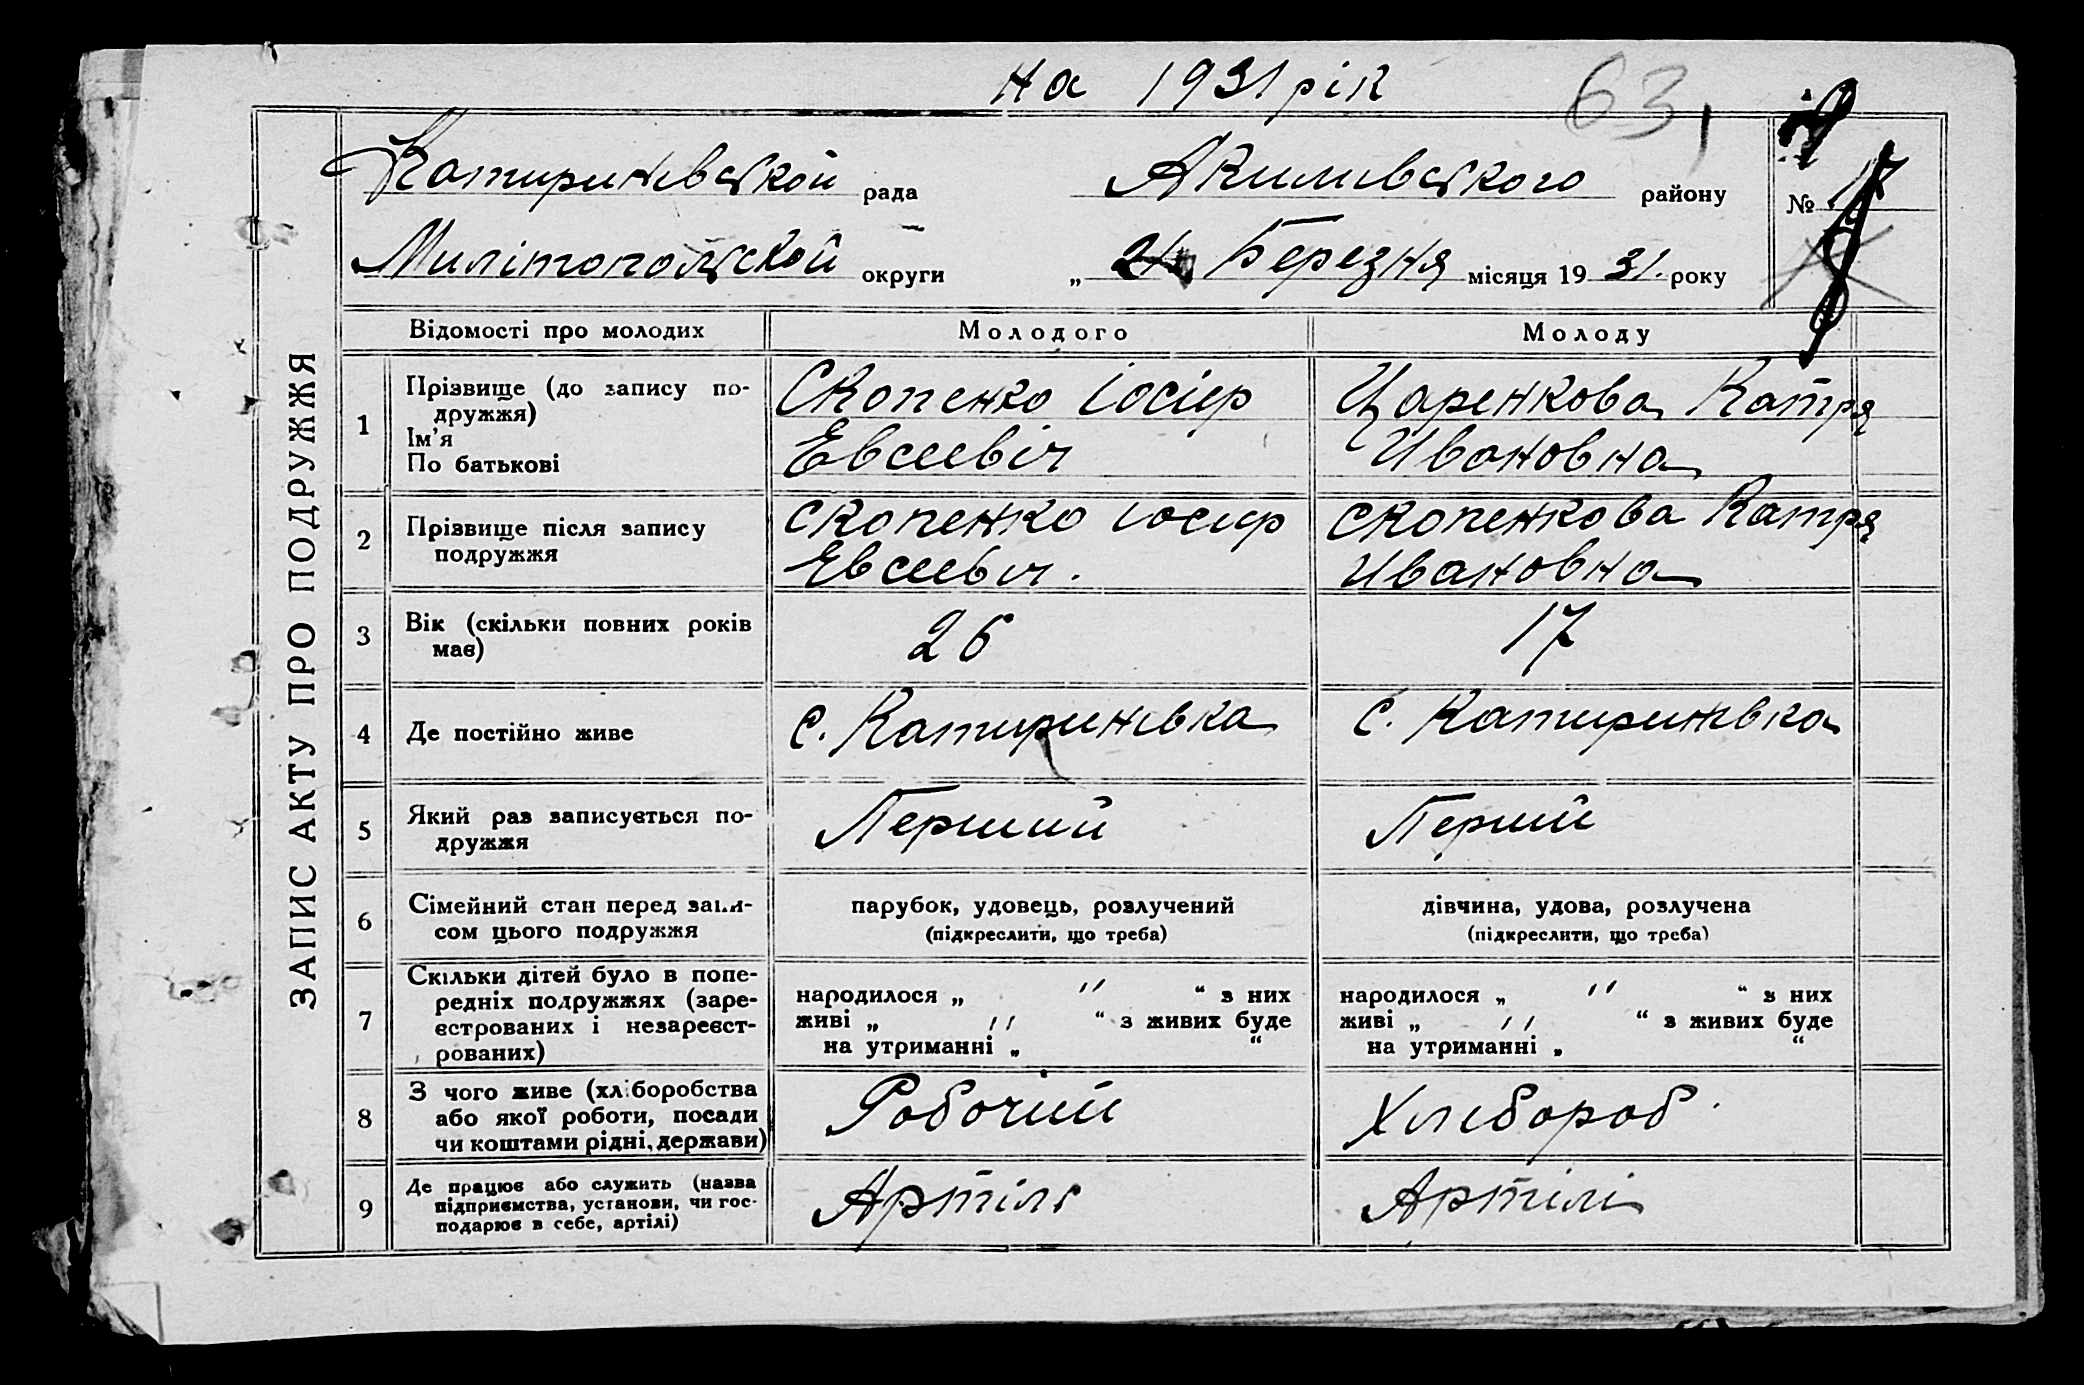 на 1931 рік
63
Катиринвской рада Акимивского району
№ 17
Милітопольской округи „ Березня місяця 19 31. року
ЗАПИС АКТУ ПРО ПОДРУЖЖЯ
Відомості про молодих Молодого Молоду
1 Прізвище (до запису по-
дружжя)
Ім’я
По батькові
Скопенко Іосіер
Евсеевіч
Царенкова Катря
Ивановна
2 Прізвище після запису
подружжя
Скопенко Іосиер
Евсеевіч.
Скопенкова Катря
Ивановна
3 Вік (скільки повних років
має)
26 17
4 Де постійно живе с. Катиринівка с. Катиринівка
5 Який раз записується по-
дружжя
Перший Перший
6 Сімейний стан перед запи-
сом цього подружжя
парубок, удовець, розлучений
(підкреслити, що треба)
дівчина, удова, розлучена
(підкреслити, що треба)
7 Скільки дітей було в попе-
редніх подружжях (заре-
єстрованих і незареєст-
рованих)
народилося „ “ з них
живі „ “ з живих буде
на утриманні „ “
народилося „ “ з них
живі „ “ з живих буде
на утриманні „ “
8 З чого живе (хліборобства
або якої роботи, посади
чи коштами рідні, держави)
Робочий Хлибороб
9 Де працює або служить (назва
підприємства, установи, чи гос-
подарює в себе, артілі)
Артіль Артілі